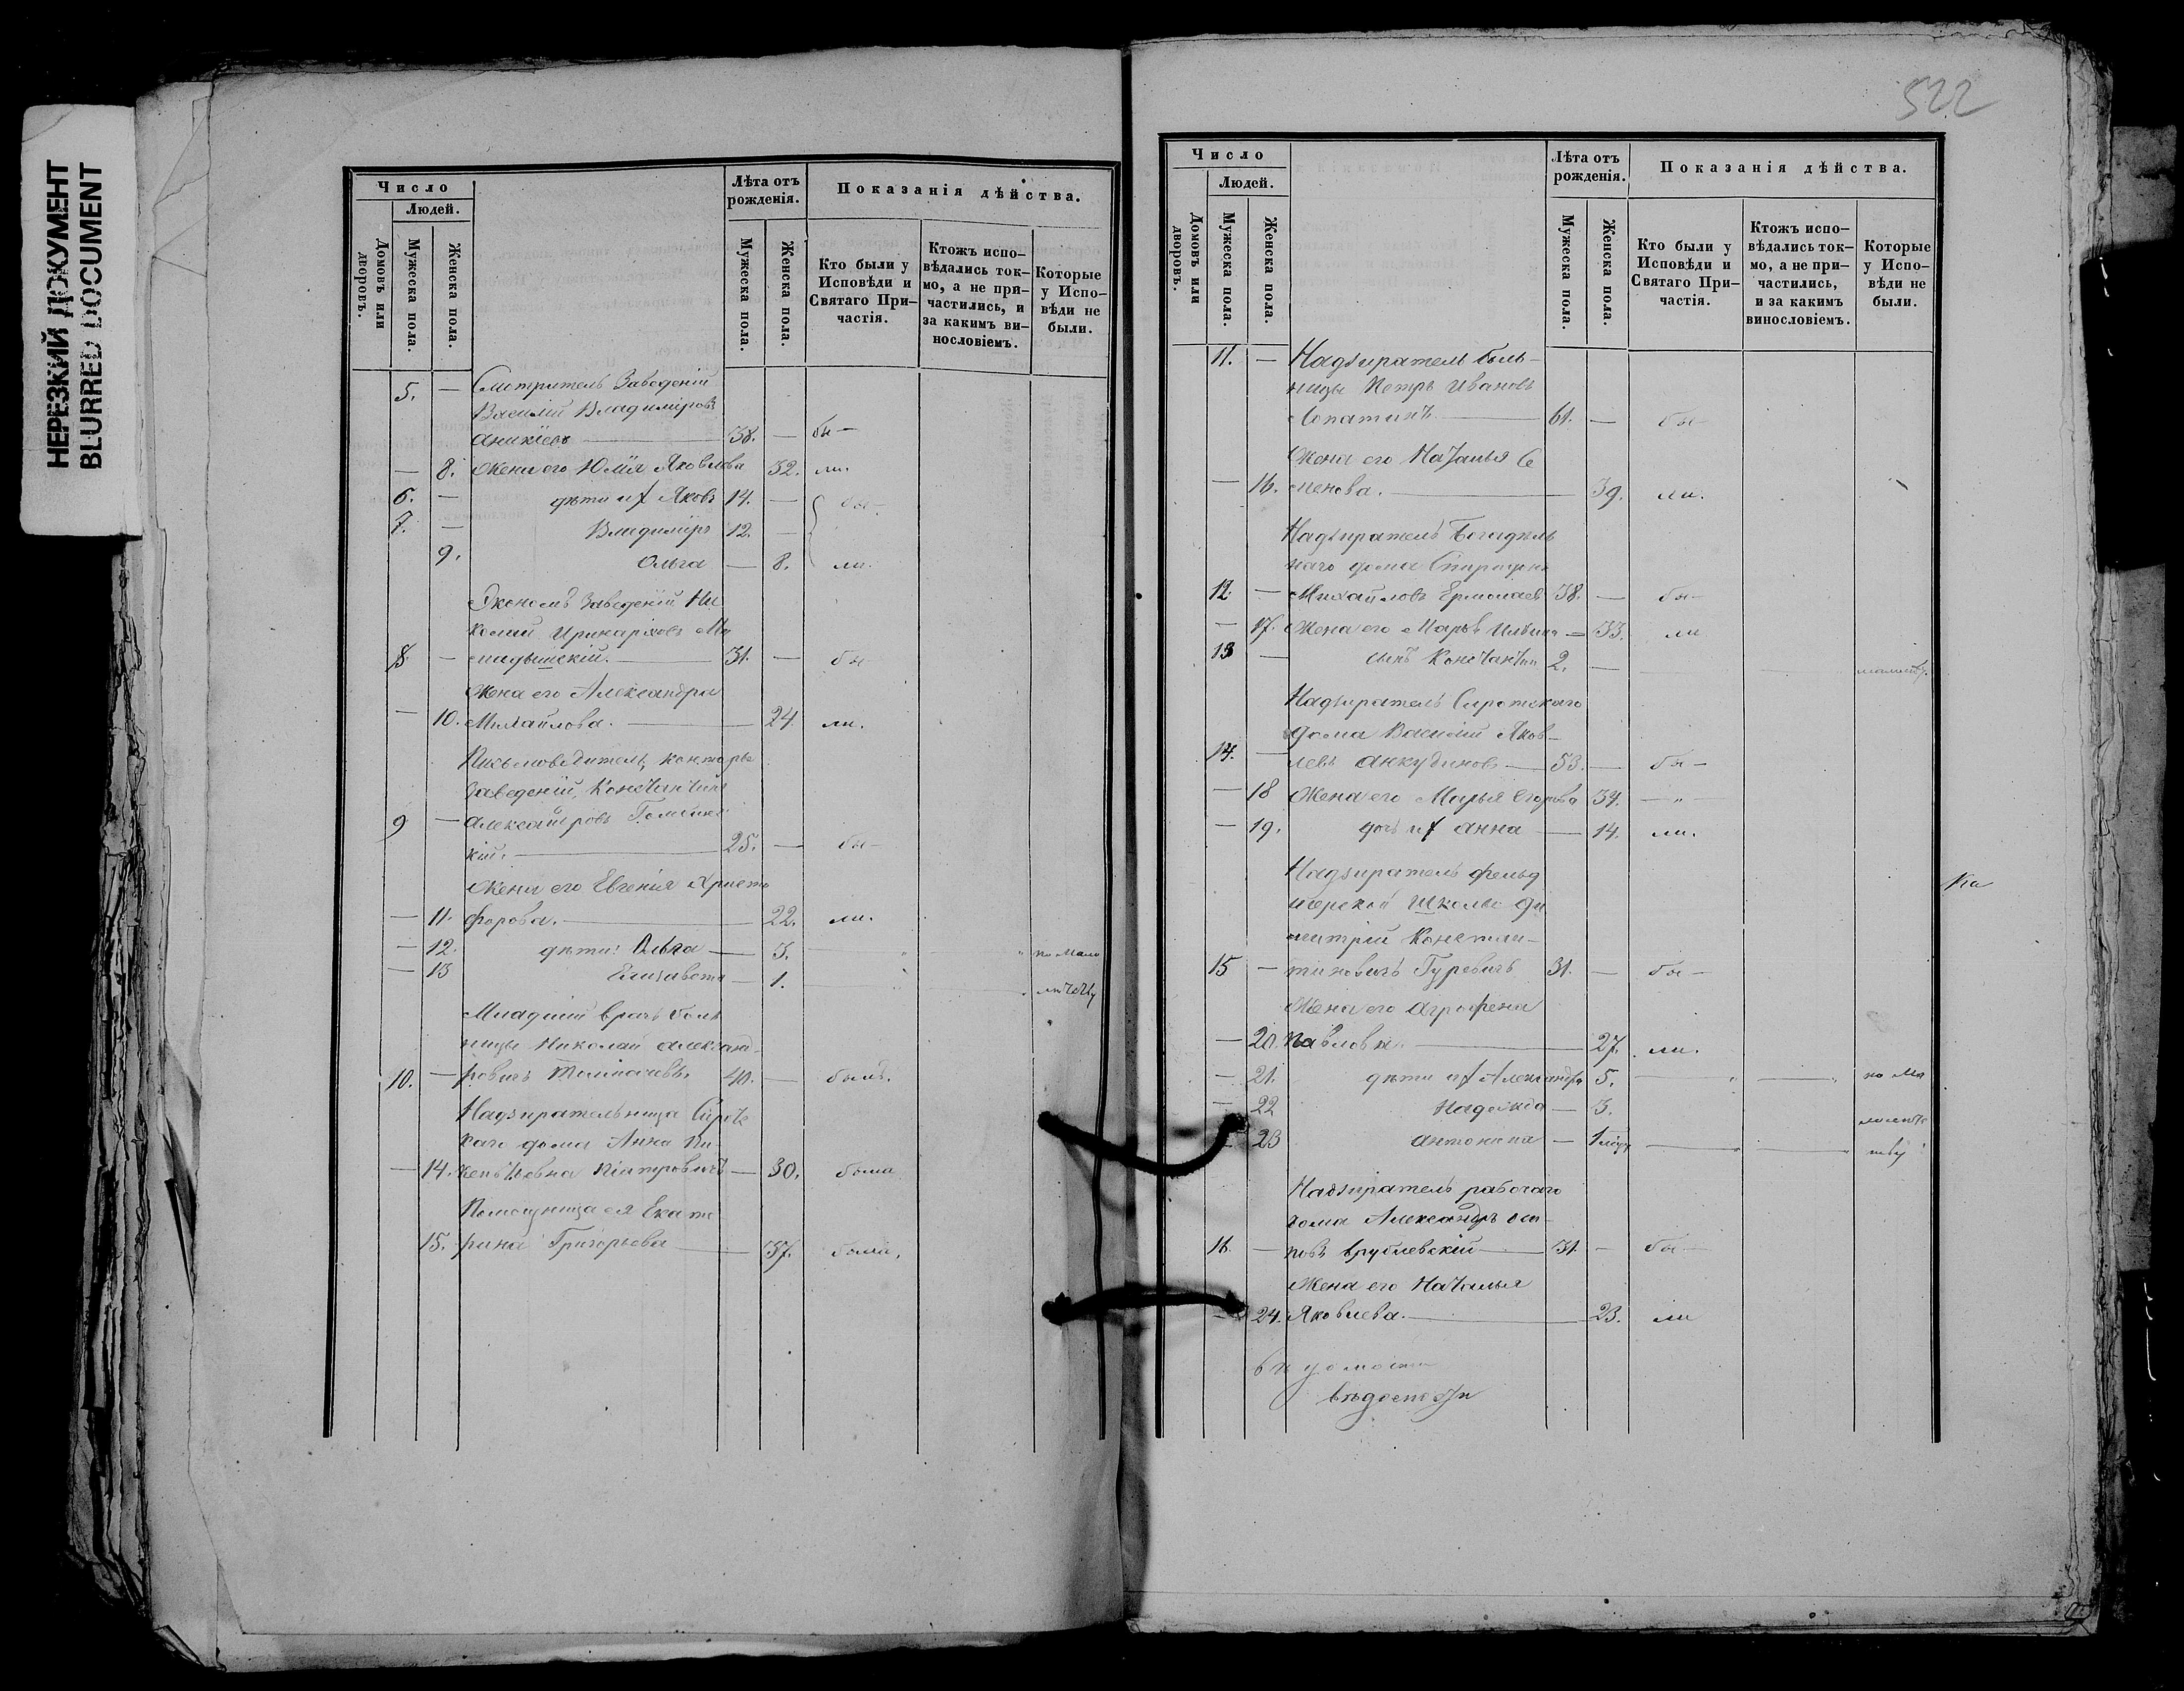 НЕРЕЗКИЙ ДОКУМЕНТ
BLURRED DOCUMENT
Число
Людей.
Домовъ или дворовъ.
Мужеска пола.
Женска пола.
Лѣта отъ рожденія.
Мужеска пола.
Женска пола.
Показанія дѣйства.
Кто были у Исповѣди и Святаго Причастія.
Ктожъ исповѣдались токмо, а не причастились, и за какимъ винословіемъ.
Которые у Исповѣди не были.
Смотритель Заведеній
Василій Владиміровъ
5. — Аникіевъ — 38. — бы—
— 8. Жена его Юлія Яковлева 32. ли.
6. — дѣти их Яковъ 14. — бы—
7. — Владиміръ 12. —
9. Ольга — 8. ли.
Экономъ Заведеній Ни
колай Иринарховъ
8. — 31. — бы—
Жена его Александра
— 10. Михайлова. — 24 ли.
Письмоводитель конторы
заведеній, Константинъ
9 — Александровъ
кій. — 25. — бы—
Жена его Евгенія Христо
— 11. форова. — 22. ли.
— 12. дѣти: Ольга — 3. по мало
— 13 Елизавета — 1. лѣтству
Младшій врачъ боль
ницы Николай Александ
10. — ровичъ Толмачевъ. 40. — былъ.
Надзирательница Сиротс
каго дома Анна Ин
— 14. — 30. была
Помощница ея Екате
15. рина Григорьева — 37. была,
522
Число
Людей.
Домовъ или дворовъ.
Мужеска пола.
Женска пола.
Лѣта отъ рожденія.
Мужеска пола.
Женска пола.
Показанія дѣйства.
Кто были у Исповѣди и Святаго Причастія.
Ктожъ исповѣдались токмо, а не причастились, и за какимъ винословіемъ.
Которые у Исповѣди не были.
11. — Надзиратель боль—
ницы Петръ Ивановъ
Лопатинъ — 61. — бы—
Жена его Наталья Се
— 16. менова. — 39. ли.
Надзиратель Богадѣль
наго дома Спиридонъ
12. — Михайловъ Ермолаевъ 38. — бы—
— 17. Жена его Марья Ильина — 33. ли
13 — сынъ Константин 2. —
Надзиратель Сиротскаго
дома Василій Яков—
14. — левъ Анкудиновъ — 53. — бы—
— 18 Жена его Марья Егорова 34. — „ —
— 19. дочь их Анна — 14. ли.
Надзиратель фельд
шерской Школы Ди
митрій Констан—
15 — тиновичъ Гуревичъ 31. — бы—
Жена его Агрофена
— 20. Павлова. — 27. ли.
— 21. дѣти их Александра 5. по ма
— 22 Надежда — 3. лолѣтс
— 23 Антонина — 1 тву
Надзиратель рабочаго
дома Александръ Оси—
16. — повъ Врублевскій — 31. — бы—
Жена его Наталья
— 24. Яковлева. — 23. ли
вѣдомости
Ка